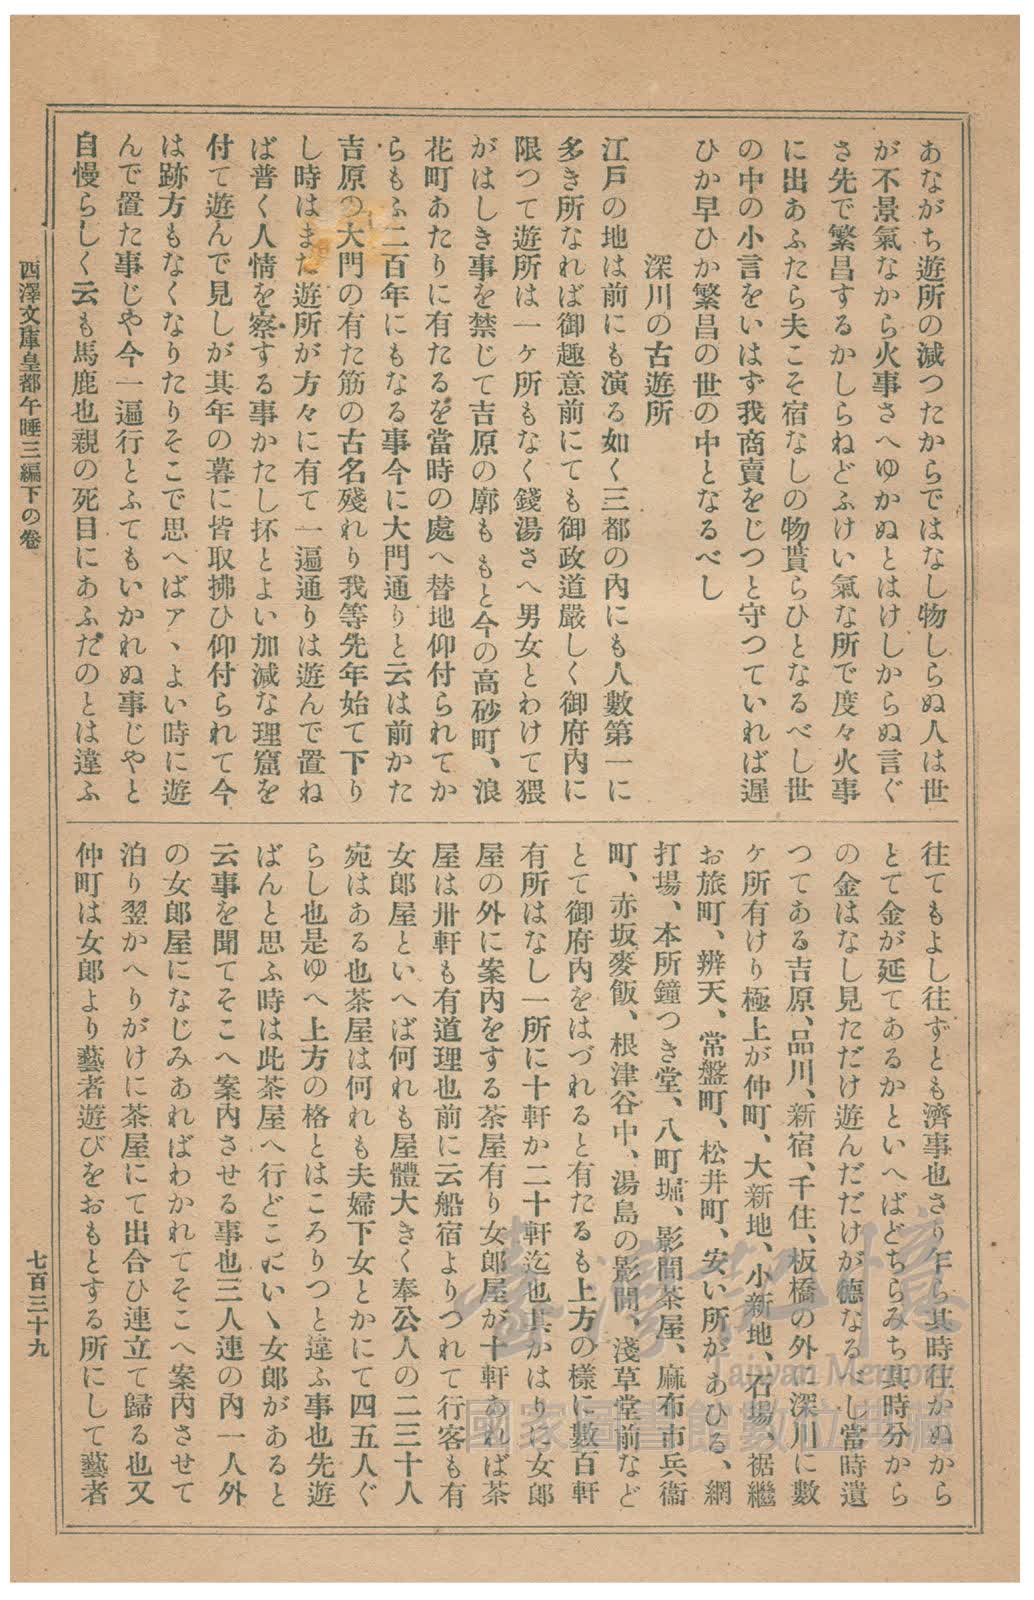 あながち遊所の減つたからではなし物しらぬ人は世
が不景氣なから火事さへゆかぬとはけしからぬ言ぐ
さ先で繁昌するかしらねどふけい氣な所で度々火事
に出あふたら夫こそ宿なしの物貰らひとなるべし世
の中の小言をいはず我商賣をじつと守つていれば遲
ひか早ひか繁昌の世の中となるべし
深川の古遊所
江戸の地は前にも演る如く三都の内にも人數第一に
多き所なれば御趣意前にても御政道嚴しく御府内に
限つて遊所は一ヶ所もなく錢湯さへ男女とわけて猥
がはしき事を禁じて吉原の廓ももと今の高砂町、浪
花町あたりに有たるを當時の處へ替地仰付られてか
らもふ二百年にもなる事今に大門通りと云は前かた
吉原の大門の有た筋の古名殘れり我等先年始て下り
し時はまだ遊所が方々に有て一遍通りは遊んで置ね
ば普く人情を察する事かたし抔とよい加減な理窟を
付て遊んで見しが其年の暮に皆取拂ひ仰付られて今
は跡方もなくなりたりそこで思へばアヽよい時に遊
んで置た事じや今一遍行とふてもいかれぬ事じやと
自慢らしく云も馬鹿也親の死目にあふだのとは違ふ
往てもよし往ずとも濟事也さり乍ら其時往かぬから
とて金が延てあるかといへばどちらみち其時分から
の金はなし見ただけ遊んだだけが德なるべし當時遺
つてある吉原、品川、新宿、千住、板橋の外に深川に數
ヶ所有けり極上が仲町、大新地、小新地、石場、裾繼
お旅町、辨天、常盤町、松井町、安い所があひる、網
打場、本所鐘つき堂、八町堀、影間茶屋、麻布市兵衞
町、赤坂麥飯、根津谷中、湯島の影間、淺草堂前など
とて御府内をはづれると有たるも上方の樣に數百軒
有所はなし一所に十軒か二十軒迄也其かはりに女郎
屋の外に案内をする茶屋有り女郎屋が十軒あれば茶
屋は卅軒も有道理也前に云船宿よりつれて行客も有
女郎屋といへば何れも屋體大きく奉公人の二三十人
宛はある也茶屋は何れも夫婦下女とかにて四五人ぐ
らし也是ゆへ上方の格とはころりつと違ふ事也先遊
ばんと思ふ時は此茶屋へ行どこにいヽ女郎があると
云事を聞てそこへ案内させる事也三人連の内一人外
の女郎屋になじみあればわかれてそこへ案内させて
泊り翌かへりがけに茶屋にて出合ひ連立て歸る也又
仲町は女郎より藝者遊びをおもとする所にして藝者
西澤文庫皇都午睡三編下の卷
七百三十九
臺灣記憶
Taiwan Memory
國家圖書館數位典藏